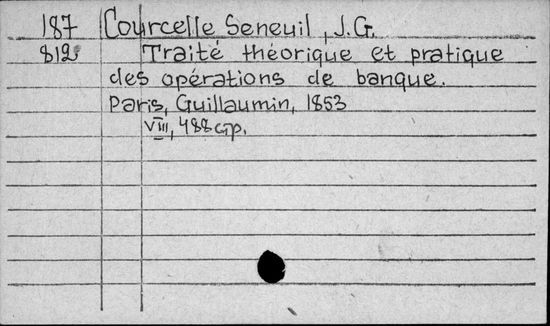 187 Courcelle Seneuil, J.G.
812 Traité théorique et pratique
des opérations de banque.
Paris, Guillaumin, 1853
VIII, 488 стр.